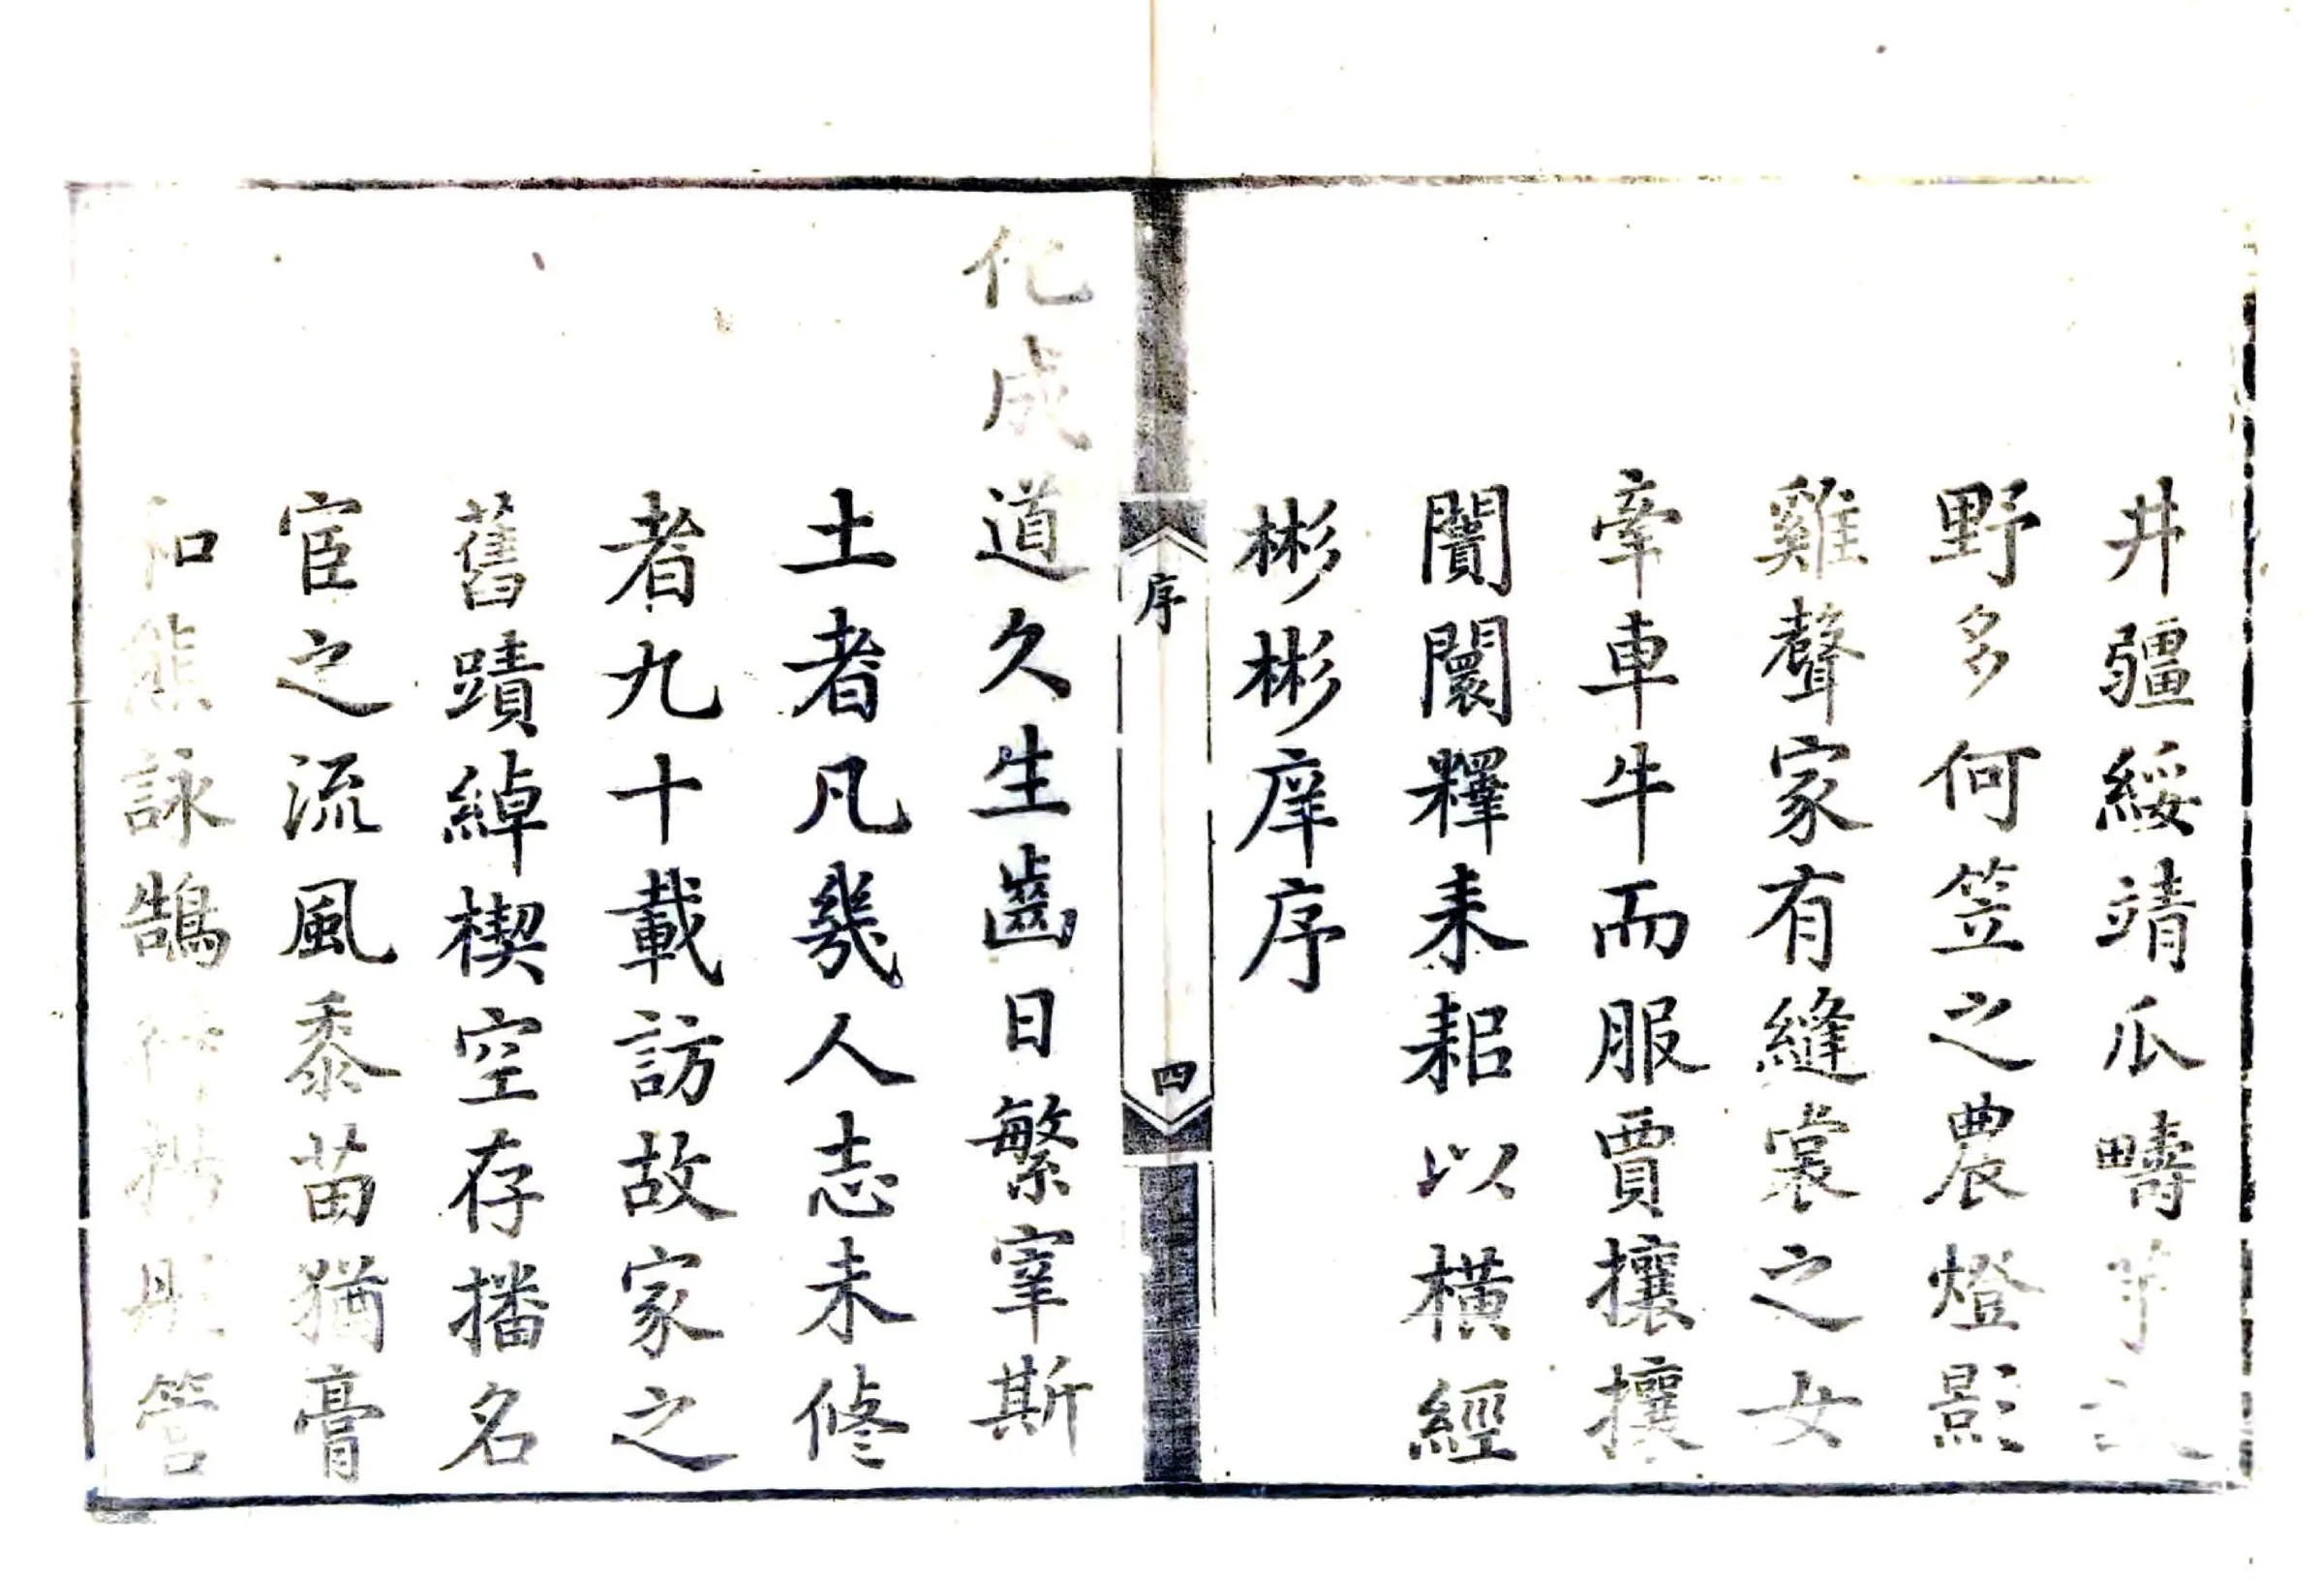 井疆綏靖瓜疇芋
野多何笠之農燈影
雞聲家有縫裳之女
牽車牛而服賈攘攘
闤闠釋耒耜以橫經
彬彬庠序
序
四
化成道久生齒日繁宰斯
土者凡幾人志未修
者九十載訪故家之
舊蹟綽楔空存播名
宦之流風黍苗猶膏
和熊詠鵠 彤管